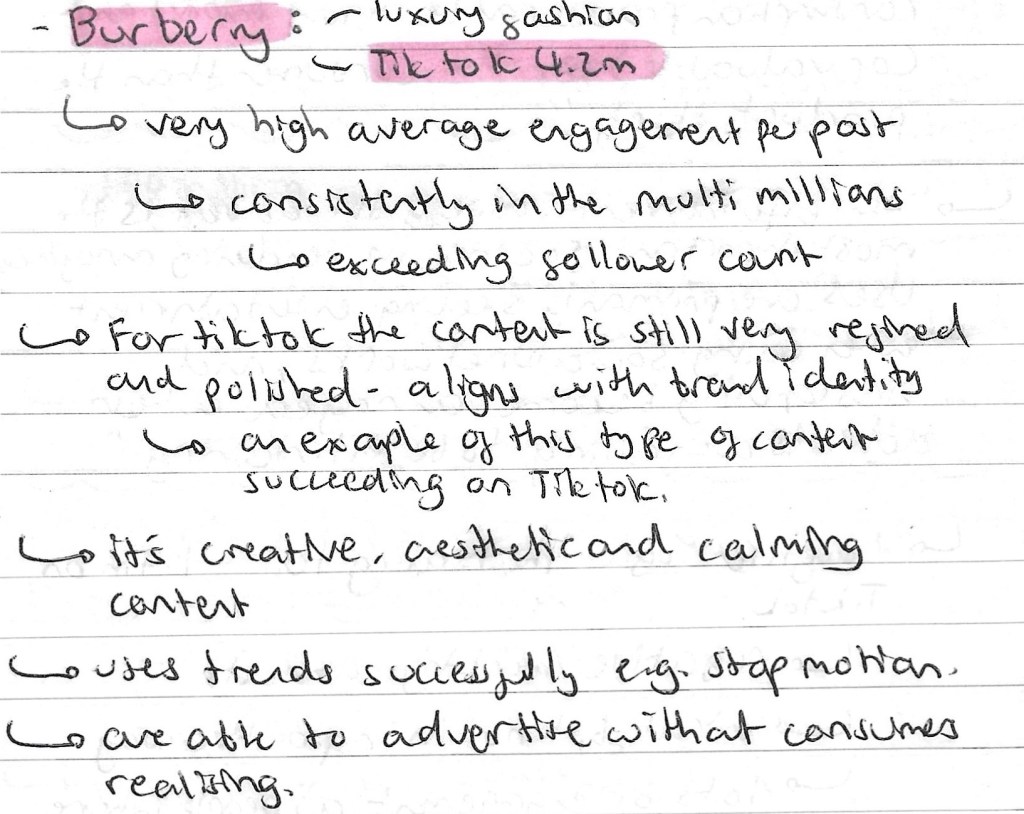 - Burberry: - luxury fashion
- Tiktok 4.2m
↳ very high average engagement per post
↳ consistently in the multi millions
↳ exceeding follower count
↳ For tiktok the content is still very refined
and polished - aligns with brand identity
↳ an exaple of this type of content
succeeding on Tiktok.
↳ it's creative, aesthetic and calming
content
↳ uses trends successfully e.g. stop motion.
↳ are able to advertise without consumes
realising.